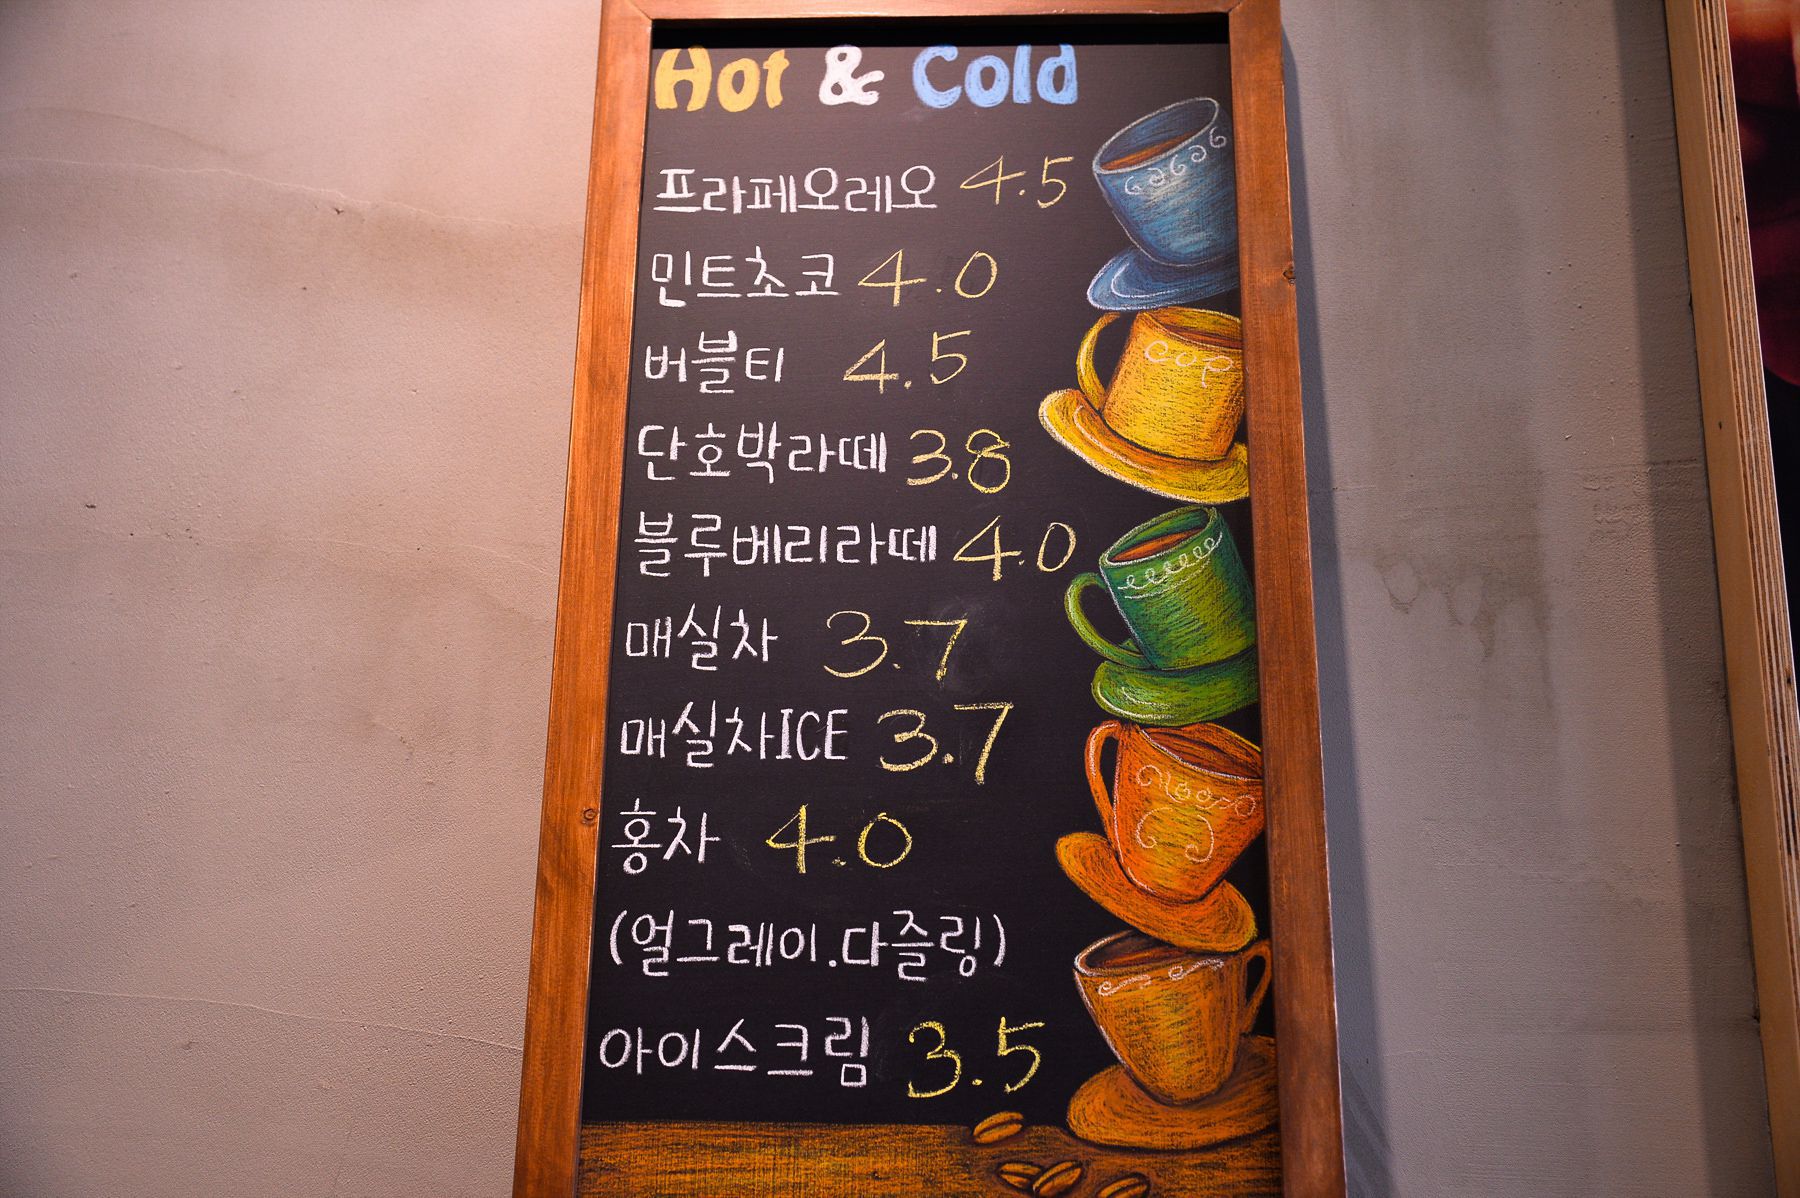 Hot & Cold
프라페오레오 4.5
민트초코 4.0
버블티 4.5
단호박라떼 3.8
블루베리라떼 4.0
매실차 3.7
매실차ICE 3.7
홍차 4.0
(얼그레이.다즐링)
아이스크림 3.5
cup